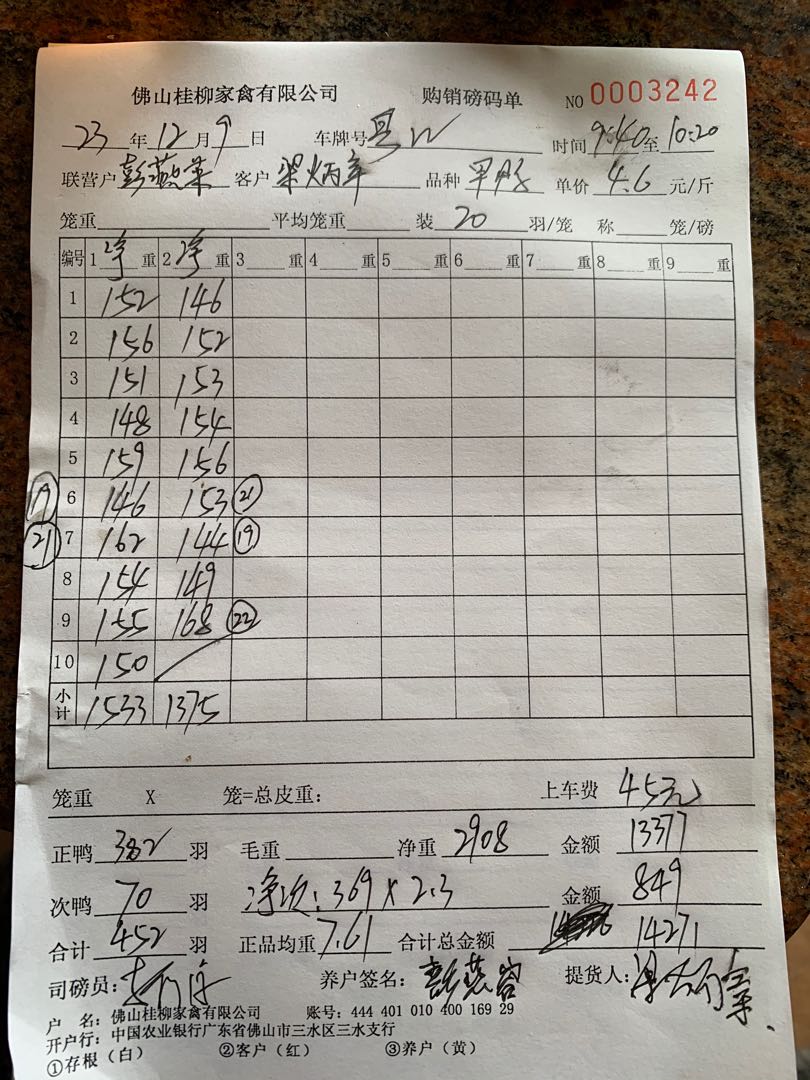 佛山桂柳家禽有限公司 购销磅码单 NO 0003242
23 年 12 月 9 日 车牌号 时间 9:40 至 10:20
联营户 彭燕 客户 梁炳年 品种 单价 4.6 元/斤
笼重 平均笼重 装 20 羽/笼 称 笼/磅
编号 1 净 重 2 净 重 3 重 4 重 5 重 6 重 7 重 8 重 9 重
1 152 146
2 156 152
3 151 153
4 148 154
5 159 156
19 6 146 153 21
21 7 162 144 19
8 154 149
9 155 168 22
10 150
小计 1533 1375
笼重 X 笼=总皮重: 上车费 45元
正鸭 382 羽 毛重 净重 2908 金额 13377
次鸭 70 羽 净次: 369 x 2.3 金额 849
合计 452 羽 正品均重 7.61 合计总金额 14271
司磅员: 养户签名: 提货人:
户 名: 佛山桂柳家禽有限公司 账号: 444 401 010 400 169 29
开户行: 中国农业银行广东省佛山市三水区三水支行
①存根(白) ②客户(红) ③养户(黄)